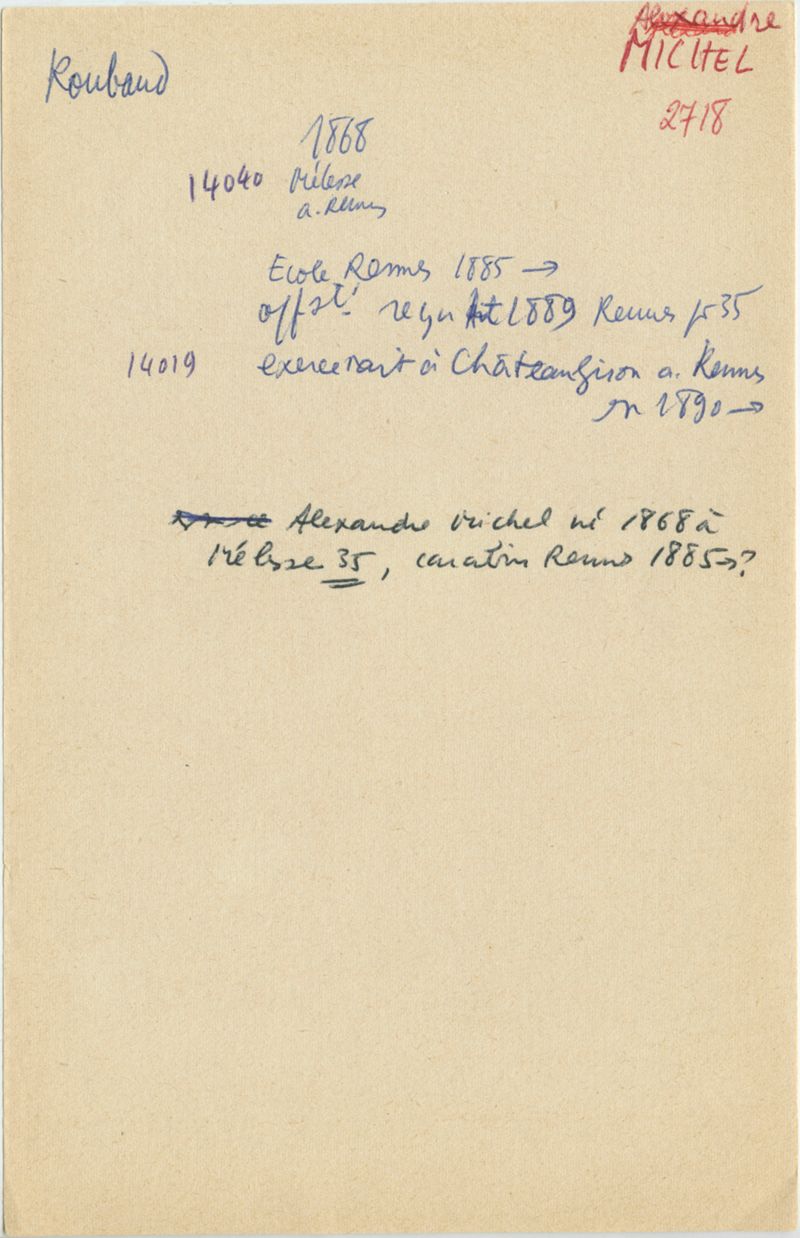 Alexandre
MICHEL
2718
Roubaud
1868
14040 Mélesse
a. Rennes
Ecole Rennes 1885 →
off st. reçu 1889 Rennes pr 35
14019 exercerait à Châteaugiron a. Rennes
en 1890 →
Alexandre Michel né 1868 à
Mélesse 35, Rennes 1885 → ?